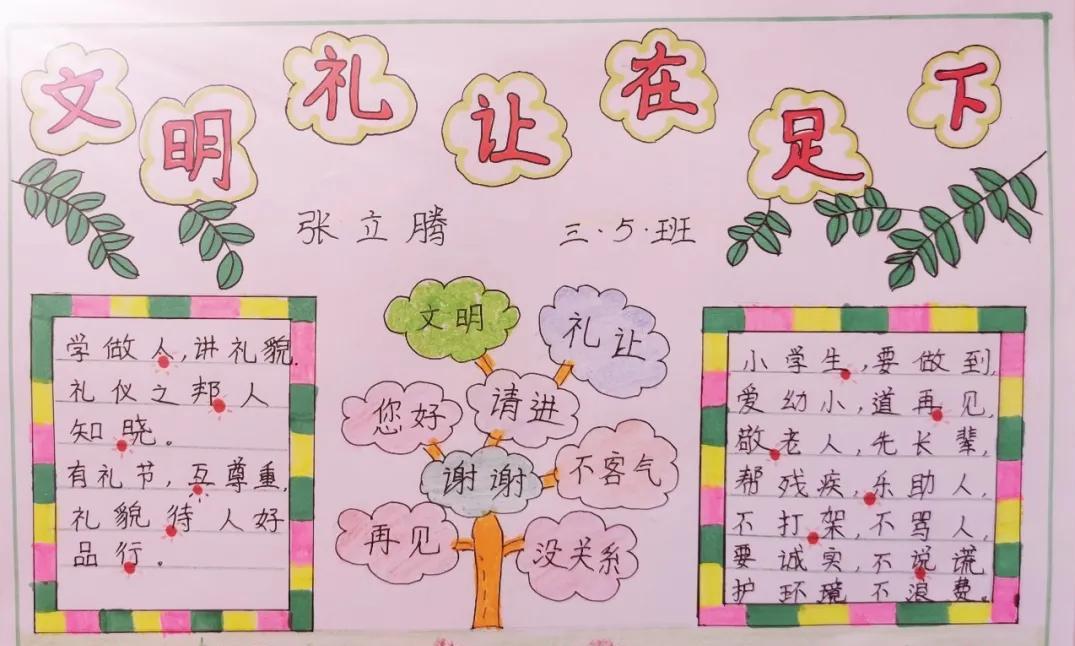 文明礼让在足下
张立腾 三·5·班
学做人,讲礼貌.
礼仪之邦人
知晓。
有礼节,互尊重,
礼貌待人好
品行。
文明
礼让
您好
请进
谢谢
不客气
再见
没关系
小学生,要做到,
爱幼小,道再见,
敬老人,先长辈,
帮残疾,乐助人,
不打架,不骂人,
要诚实,不说谎
护环境不浪费。